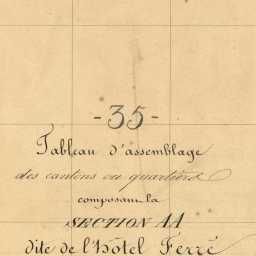 - 35 -
Tableau d'assemblage
des cantons ou quartiers
composant la
SECTION AA
dite de l'Hôtel Ferré